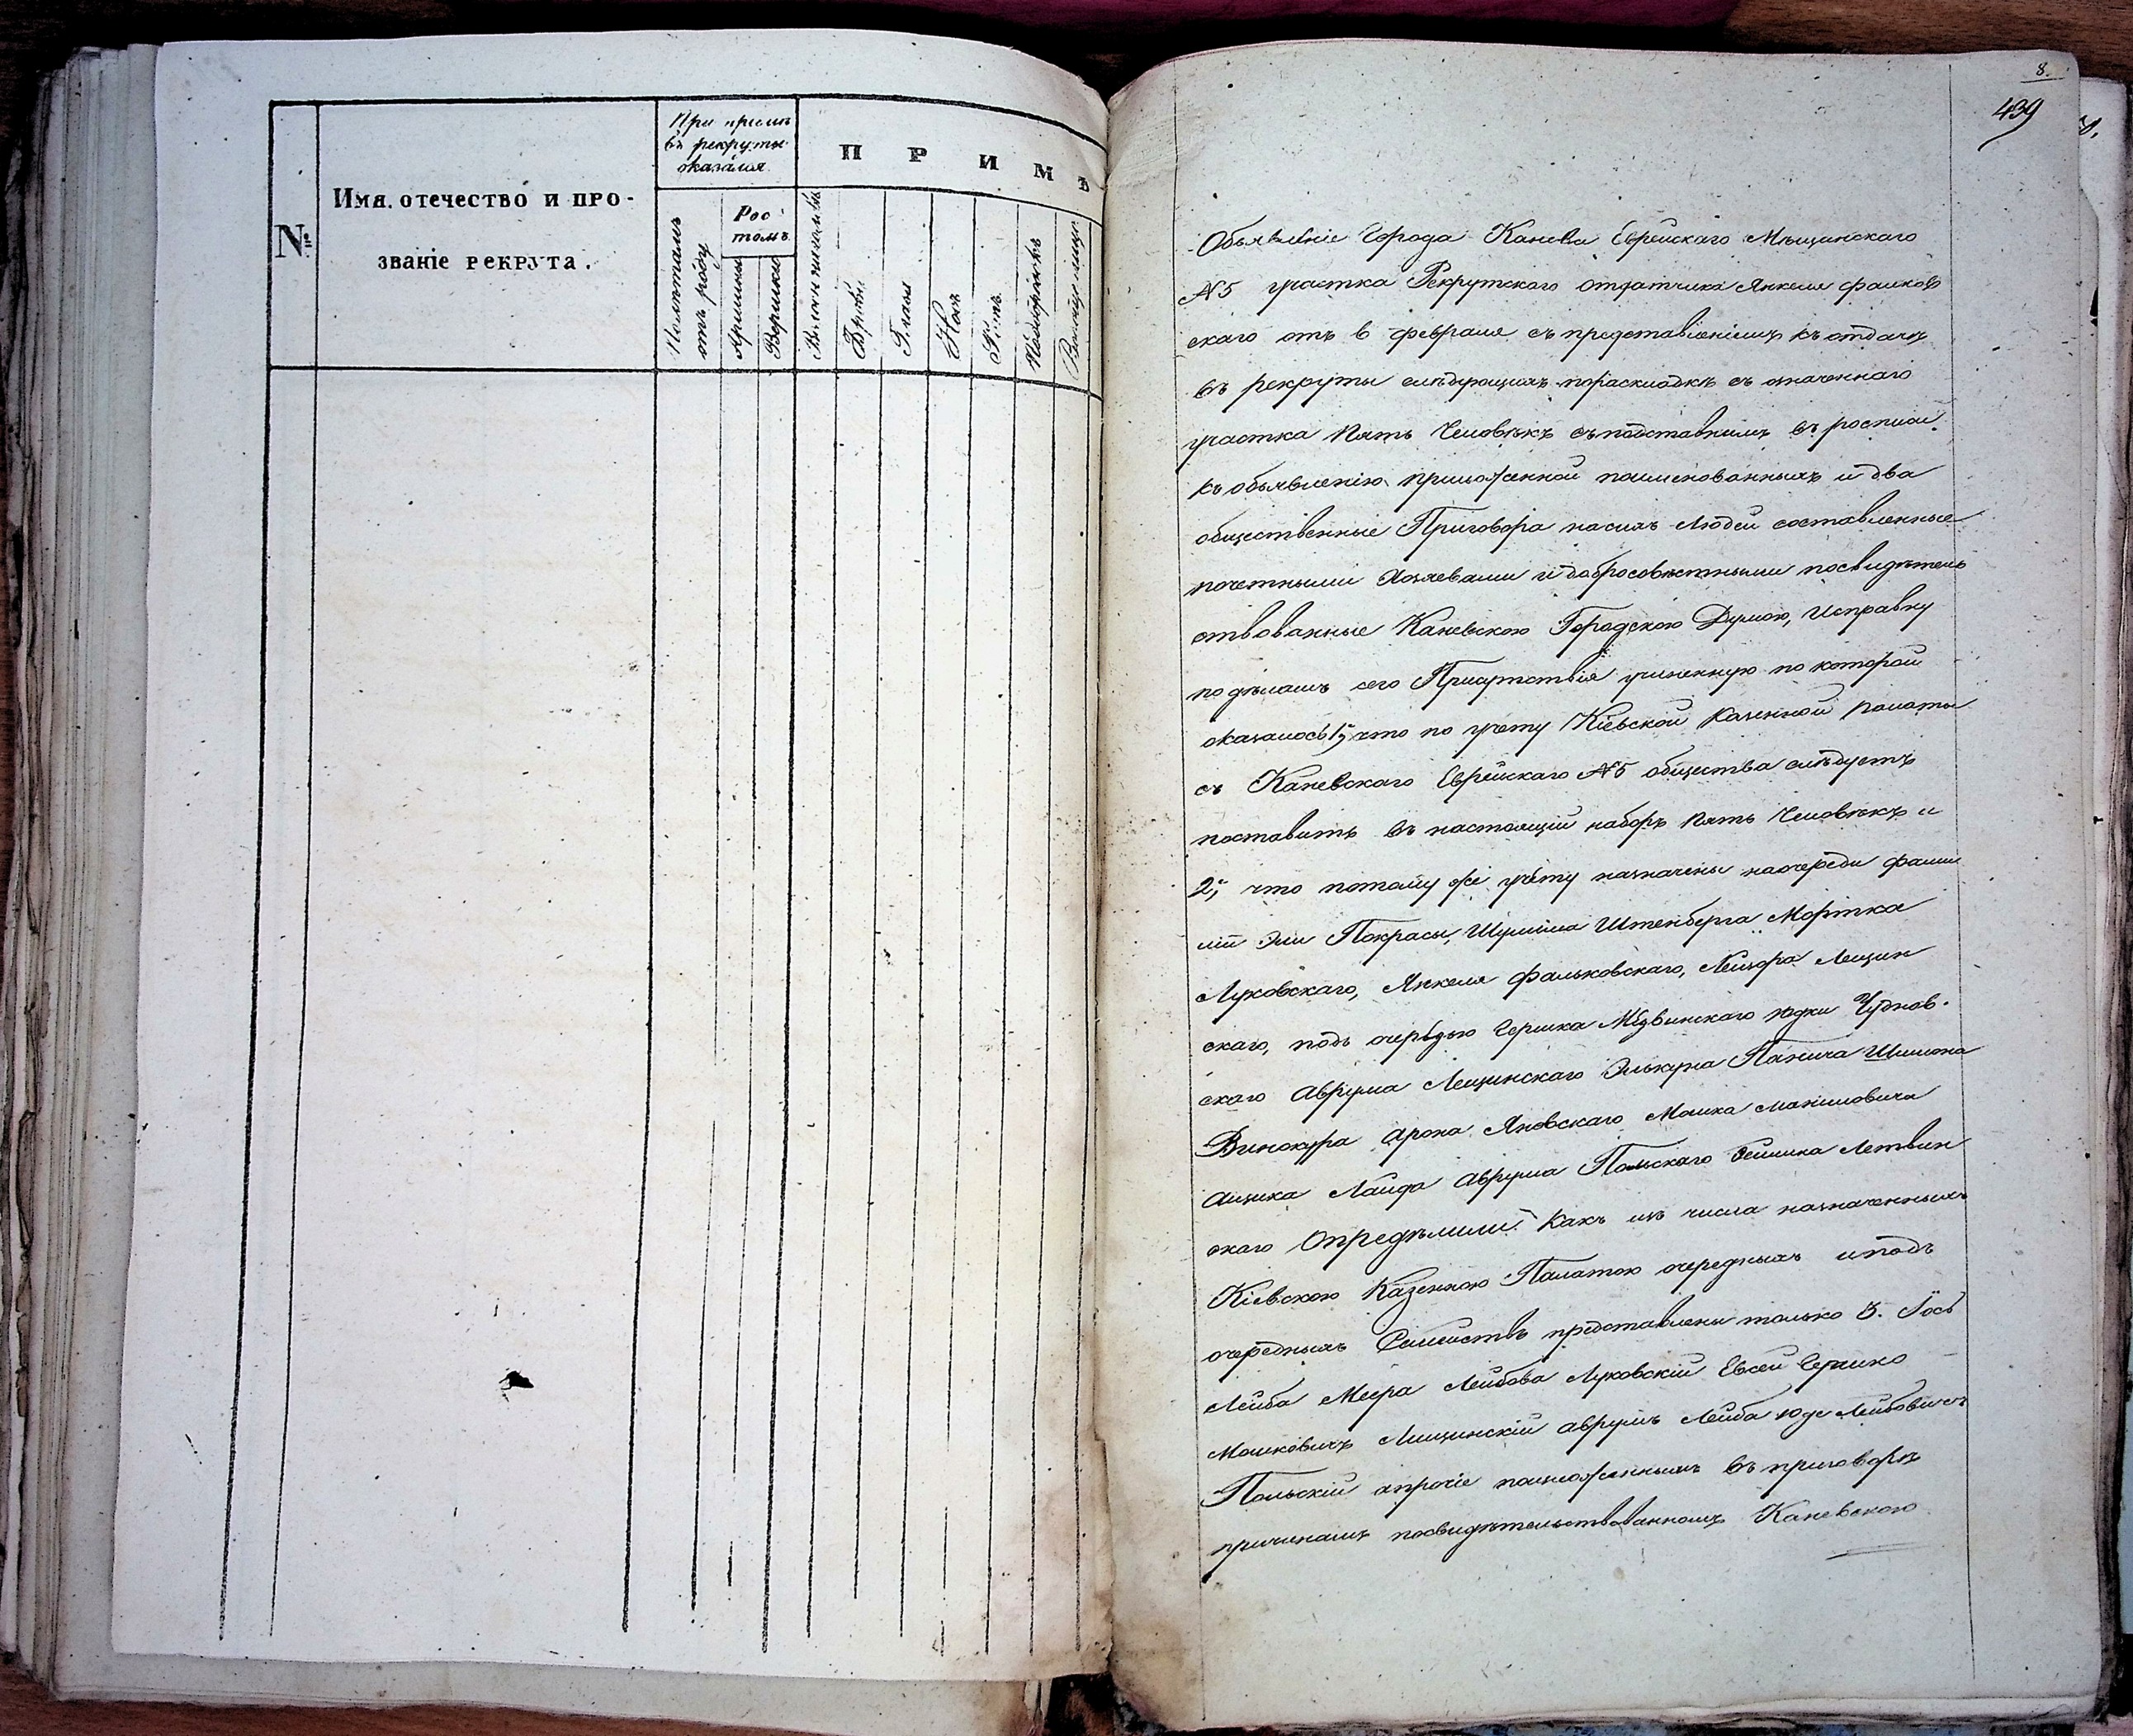 №
Имя, отечество и про-
званіе рекрута.
При пріемѣ
въ рекруты
оказался
Полѣтамъ
отъ роду
Рос-
томъ
Аршины
Вершки
П Р И М Ѣ
Брови
Глаза
Носъ
Ротъ
Подбородокъ
8.
439
Объявленіе Города Канева Еврейскаго Мѣщанскаго
№5 участка Рекрутскаго отдатчика Янкеля Фальков
скаго отъ 6 февраля съ представленіемъ къ отдачѣ
въ рекруты слѣдующихъ пораскладкѣ съ означеннаго
участка Пять Человѣкъ съ подставными въ росписи
къ объявленію приложенной поименованныхъ и два
общественные Приговора насихъ Людей составленные
почетными Хозяевами и добросовѣстными посвидѣтель
ствованные Каневскою Городскою Думою, Исправку
по дѣламъ сего Присутствія учиненную по которой
оказалось 1, что по учету Кіевской Казенной Палаты
съ Каневскаго Еврейскаго №5 общества слѣдуетъ
поставить въ настоящій наборъ Пять Человѣкъ и
2, что потому же учету назначены на очереди фами
ліи Эли Покрасы, Шулима Штенберга Мортка
Луковскаго, Янкеля Фальковскаго, Лейзора Лещин
скаго, подъ очередью Гершка Медвинскаго Юдки Чуднов-
скаго Аврума Лещинскаго Элькуна Панича Шимона
Винокура Арона Яновскаго Мошка Манилловича
Аицика Лаида Аврума Польскаго Бениика Летвин
скаго Опредѣлили: Какъ изъ числа назначенныхъ
Кіевскою Казенною Палатою очередныхъ и подъ
очередныхъ Семействъ представлены только 3. Іось
Лейба Меера Лейбова Луковскій Евсей Гершко
Мошковичъ Лещинскій Аврумъ Лейба Юде Лейбовичъ
Польскій а прочіе по изложеннымъ въ приговорѣ
причинамъ посвидѣтельствованномъ Каневскою